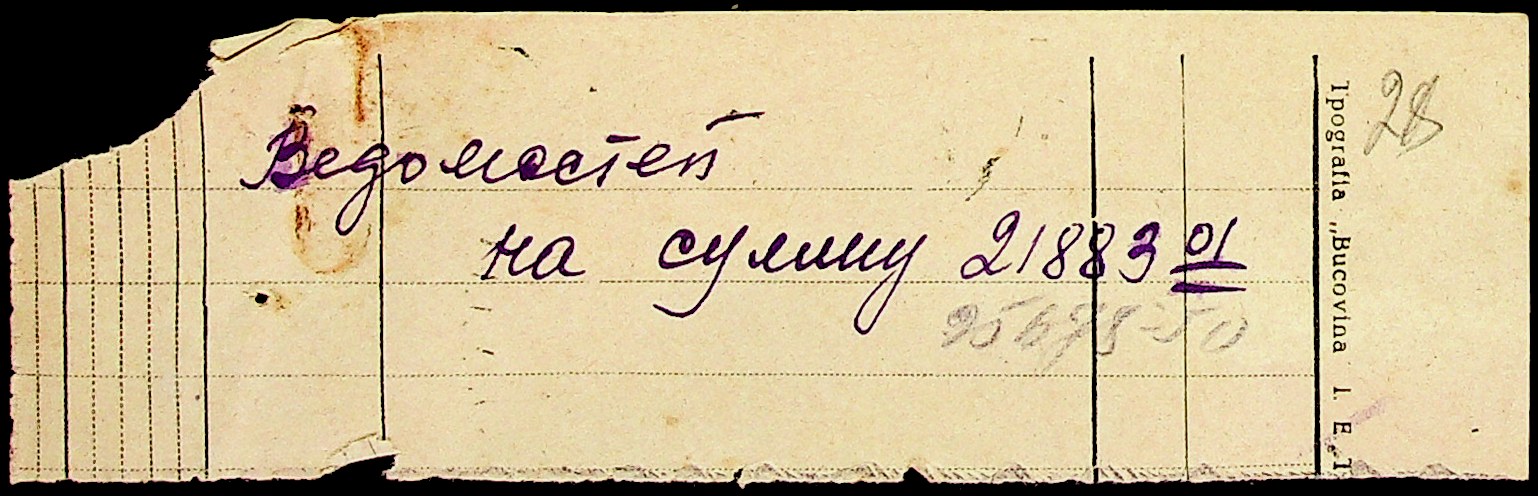 Ведомостей
на сумму 21883 01
28
Tipografia „Bucovina I. E.